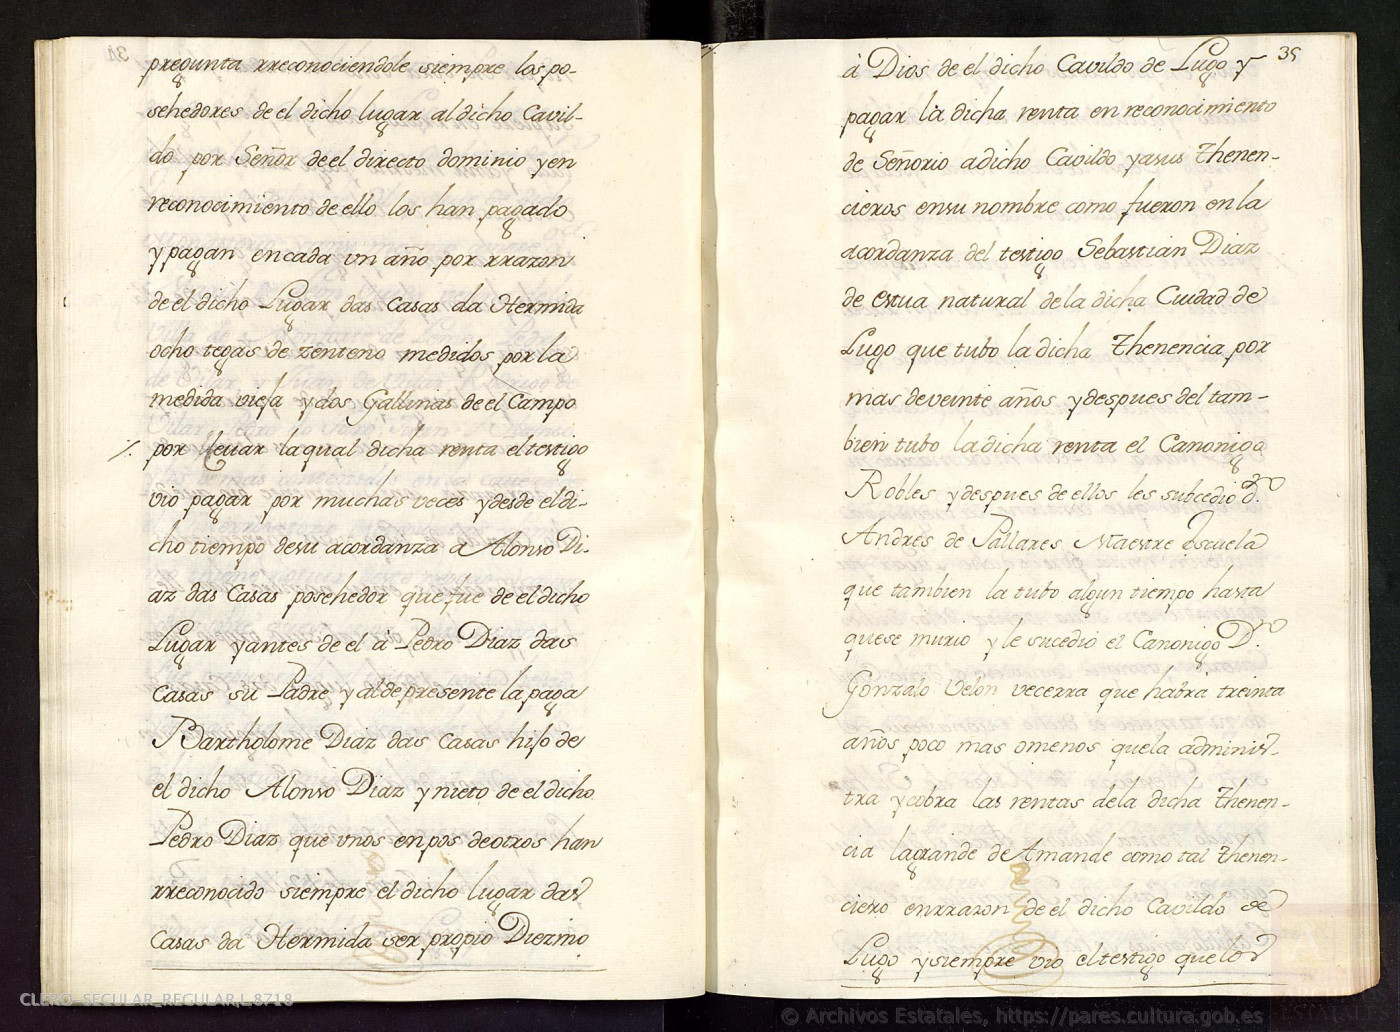 pregunta rreconociendole siempre los po-
sehedores de el dicho lugar al dicho Cavil-
do por Señor de el directo dominio y en
reconocimiento de ello los han pagado
y pagan en cada vn año por rrazon
de el dicho Lugar das Casas da Hermida
ocho tegas de zenteno medidos por la
medida vieja y dos Gallinas de el Campo
por lleuar la qual dicha renta el testigo
vio pagar por muchas veces y desde el di-
cho tiempo de su acordanza a Alonso Di-
az das Casas posehedor que fue de el dicho
Lugar y antes de el à Pedro Diaz das
Casas su Padre y al de presente la paga
Bartholome Diaz das Casas hijo de
el dicho Alonso Diaz y nieto de el dicho
Pedro Diaz que vnos en pos de otros han
rreconocido siempre el dicho lugar das
Casas da Hermida ser propio Diezmo
35
à Dios de el dicho Cavildo de Lugo y
pagar la dicha renta en reconocimiento
de Señorio a dicho Cavildo y a sus Thenen-
cieros en su nombre como fueron en la
acordanza del testigo Sebastian Diaz
de estua natural de la dicha Cuidad de
Lugo que tubo la dicha Thenencia por
mas de veinte años y despues del tam-
bien tubo la dicha renta el Canonigo
Robles y despues de ellos les subcedio D.º
Andres de Pallares Maestre Escuela
que tambien la tubo algun tiempo hasta
que se murio y le sucedió el Canonigo D.º
Gonzalo Velon vecerra que habrá treinta
años poco mas o menos que la adminis-
tra y cobra las rentas de la dicha Thenen-
cia la grande de Amande como tal Thenen-
ciero en rrazon de el dicho Cavildo de
Lugo y siempre vio el testigo que los
CLERO-SECULAR_REGULAR,L.8718
© Archivos Estatales, https://pares.cultura.gob.es
ARCHIVOS
ESTATALES